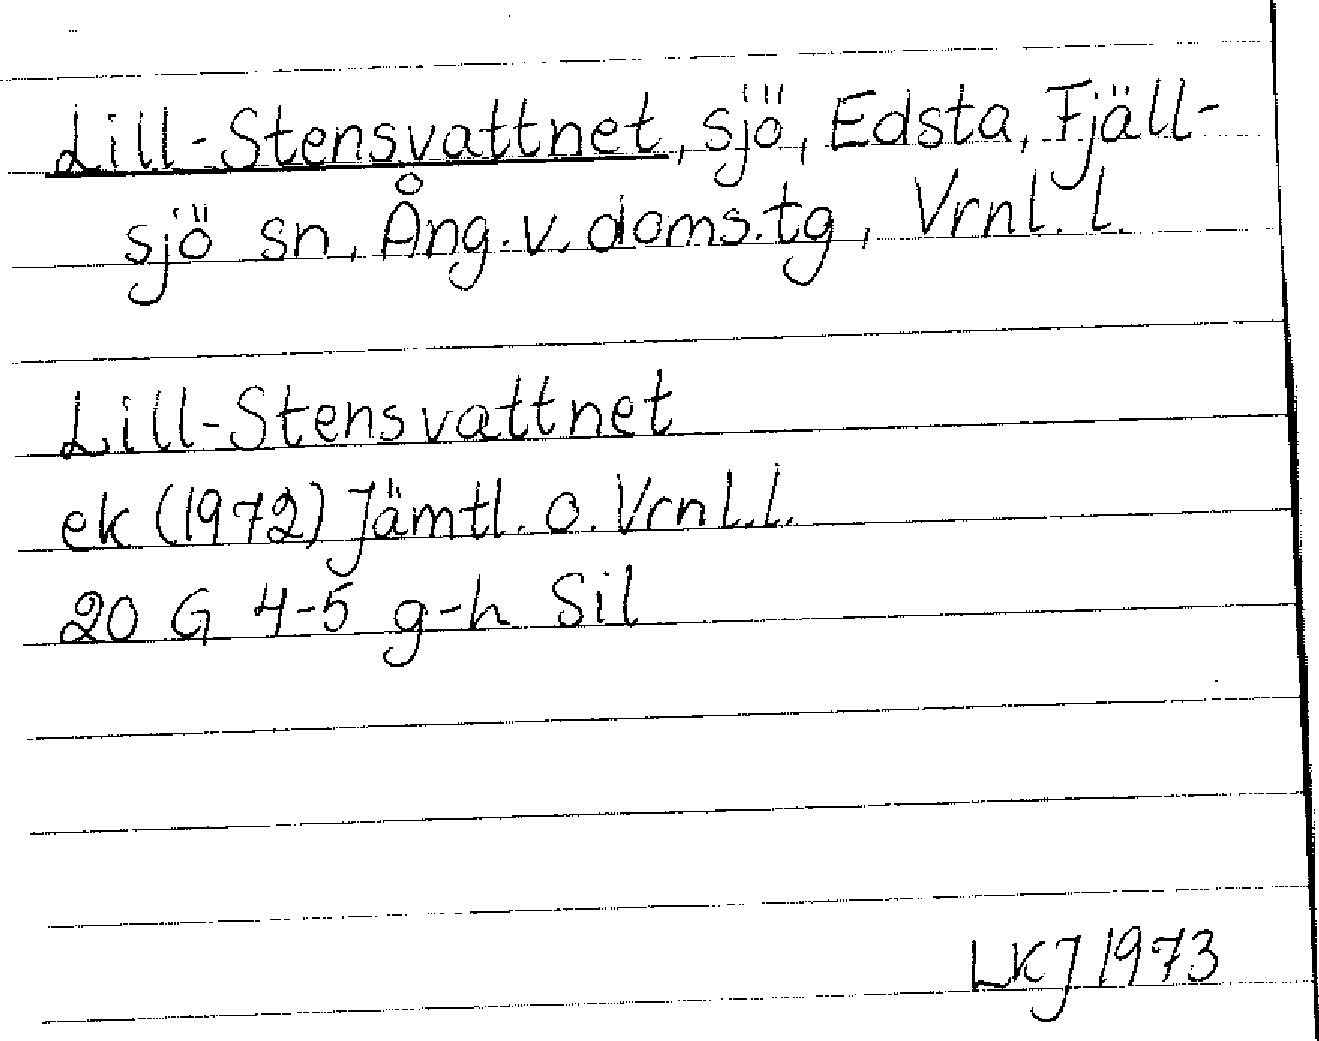 Lill-Stensvattnet, sjö, Edsta, Fjäll-
sjö sn, Ång.v.doms.tg, Vrnl.l.
Lill-Stensvattnet
ek (1972) Jämtl. o. Vrnl.l.
20 G 4-5 g-h Sil
LKJ 1973